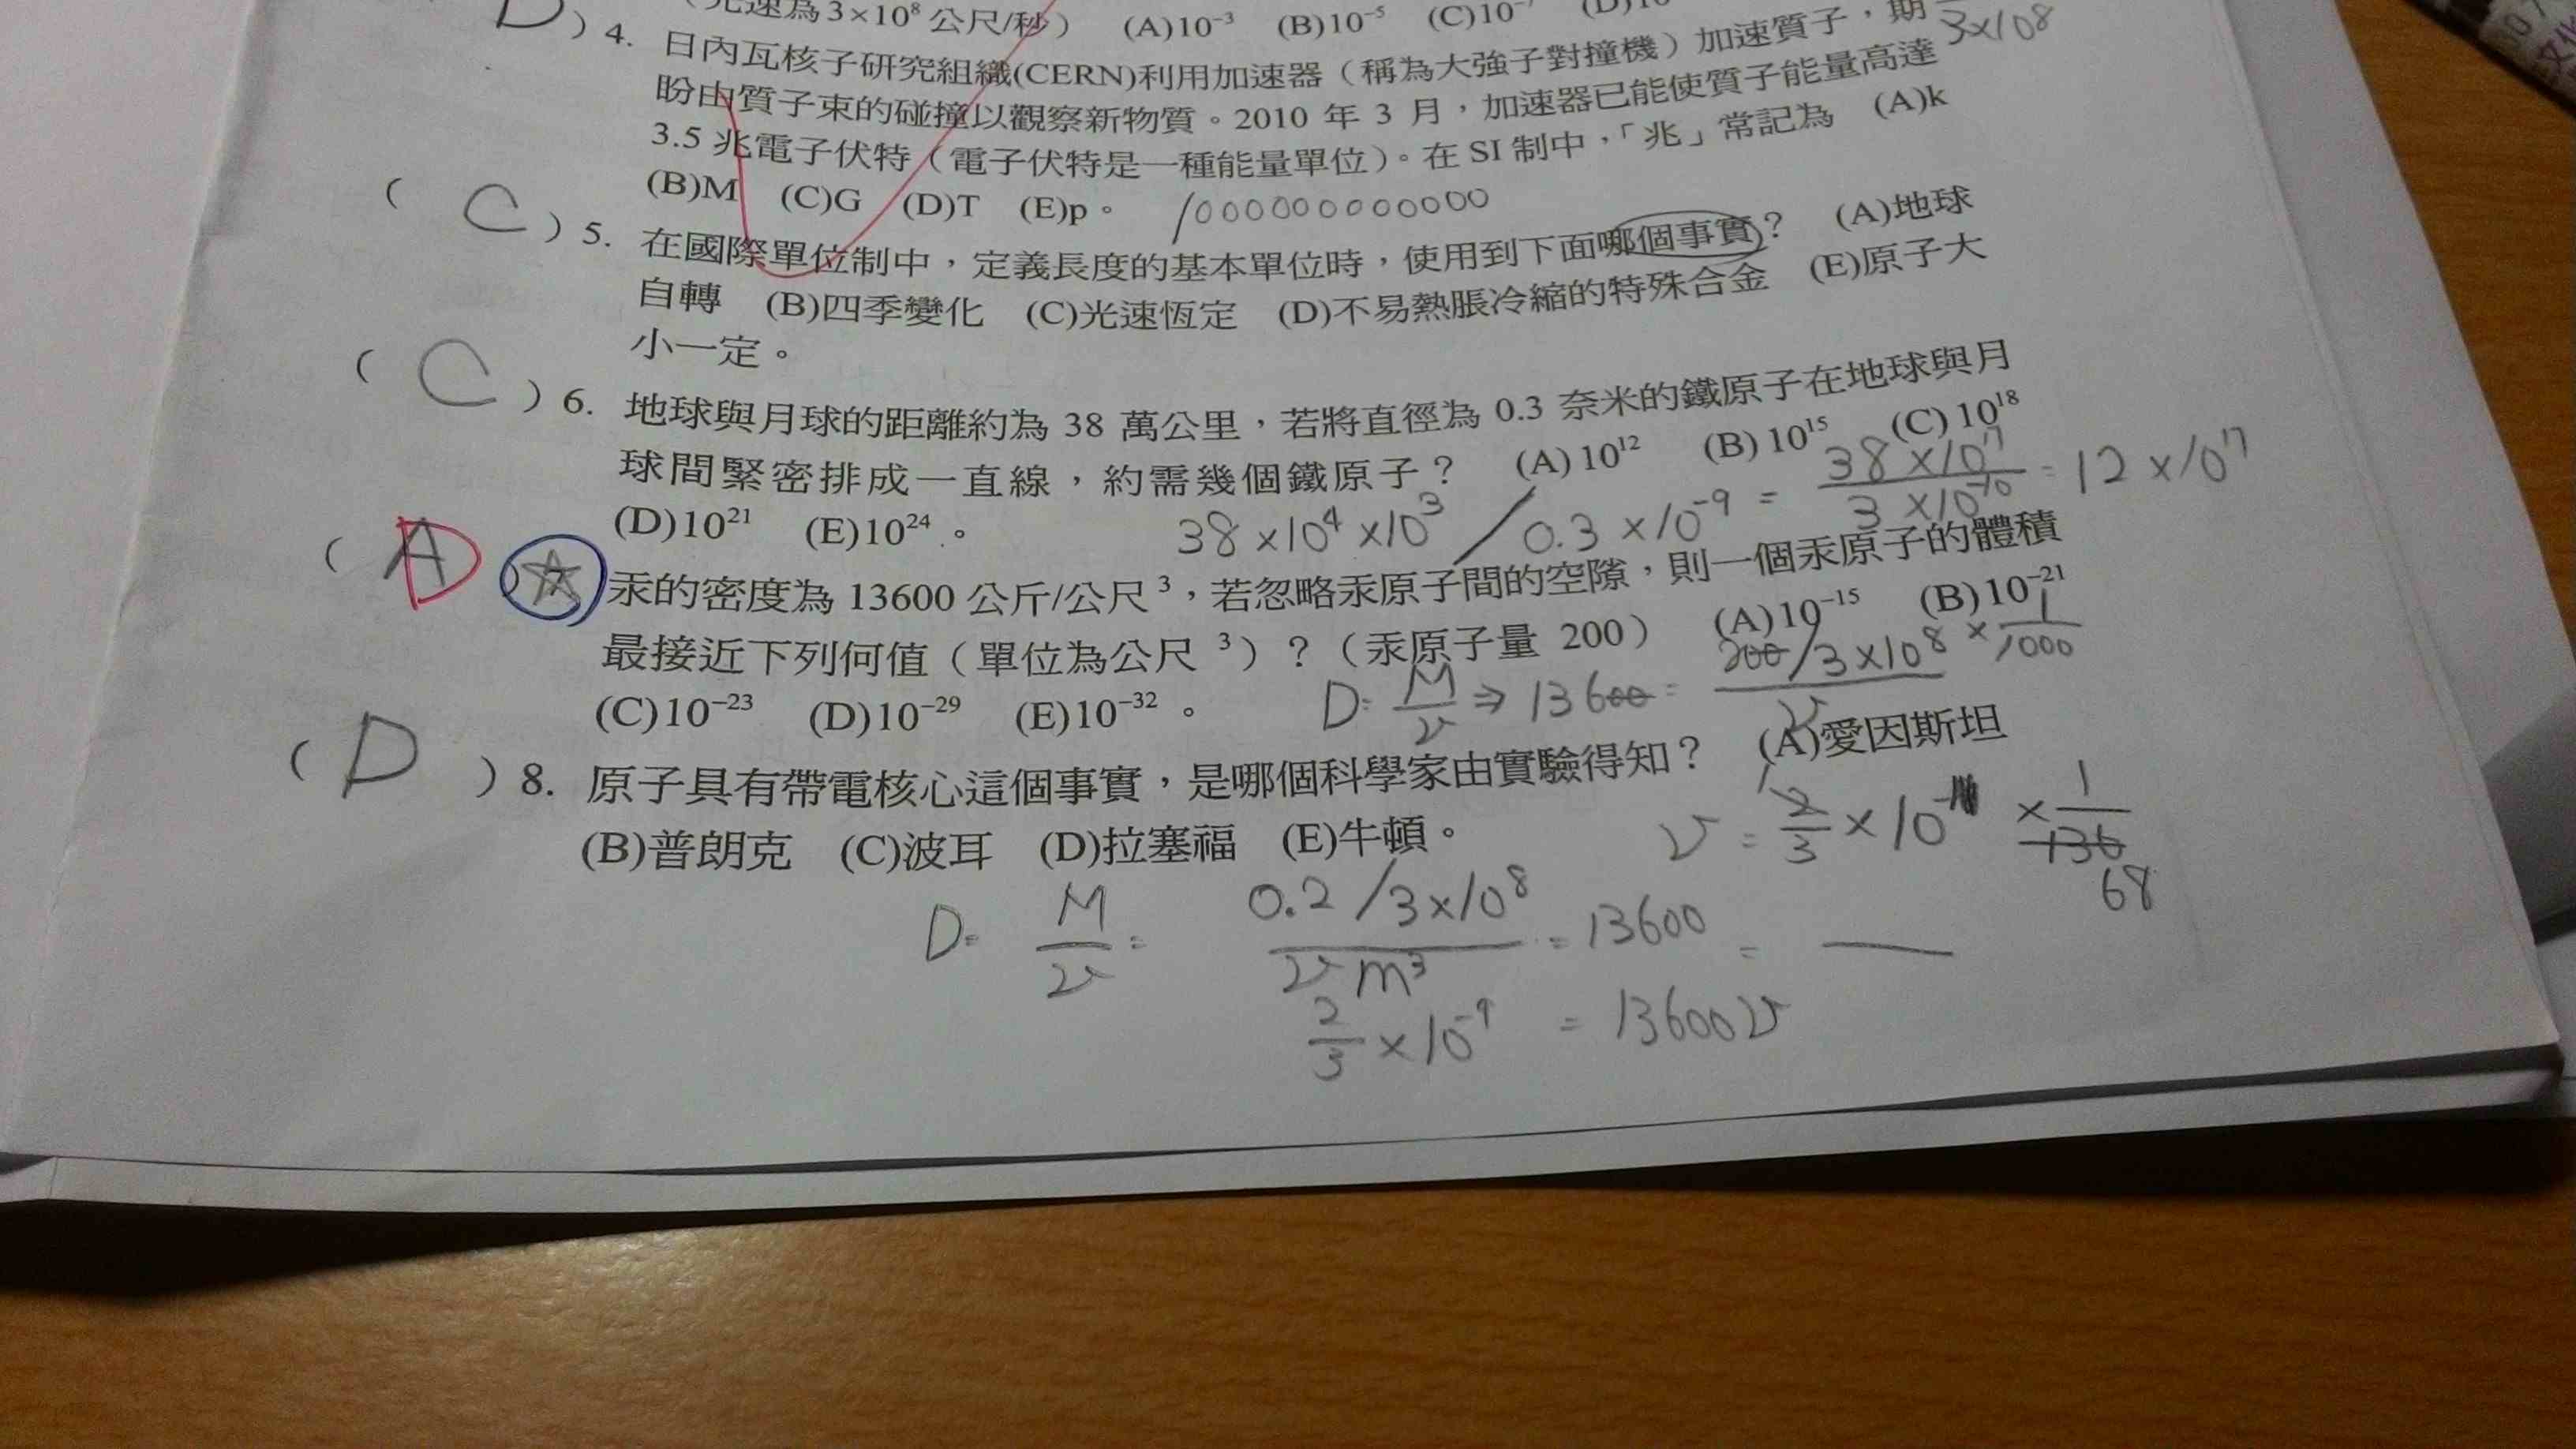 光速為3×10⁸公尺/秒） (A)10⁻³ (B)10⁻⁵ (C)10⁻⁷
3×10⁸
D ）4. 日內瓦核子研究組織(CERN)利用加速器（稱為大強子對撞機）加速質子，期
盼由質子束的碰撞以觀察新物質。2010 年 3 月，加速器已能使質子能量高達
3.5 兆電子伏特（電子伏特是一種能量單位）。在 SI 制中，「兆」常記為 (A)k
(B)M (C)G (D)T (E)p。 1000000000000
( C ) 5. 在國際單位制中，定義長度的基本單位時，使用到下面哪個事實？ (A)地球
自轉 (B)四季變化 (C)光速恆定 (D)不易熱脹冷縮的特殊合金 (E)原子大
小一定。
( C ) 6. 地球與月球的距離約為 38 萬公里，若將直徑為 0.3 奈米的鐵原子在地球與月
球間緊密排成一直線，約需幾個鐵原子？ (A)10¹² (B)10¹⁵ (C)10¹⁸
(D)10²¹ (E)10²⁴。
38×10⁴×10³ / 0.3×10⁻⁹ = 38×10¹⁷ / 3×10⁻¹⁰ = 12×10¹⁷
( A D ) 汞的密度為 13600 公斤/公尺³，若忽略汞原子間的空隙，則一個汞原子的體積
最接近下列何值（單位為公尺³）？（汞原子量 200） (A)10⁻¹⁵ (B)10⁻²¹
(C)10⁻²³ (D)10⁻²⁹ (E)10⁻³²。
D= M/v ⇒ 13600 = 200/3×10⁸ × 1/1000 / v
( D ) 8. 原子具有帶電核心這個事實，是哪個科學家由實驗得知？ (A)愛因斯坦
(B)普朗克 (C)波耳 (D)拉塞福 (E)牛頓。
v = 2/3 × 10 × 1/136
68
D= M/v = 0.2/3×10⁸ / v m³ = 13600 =
2/3 × 10⁻⁹ = 13600v